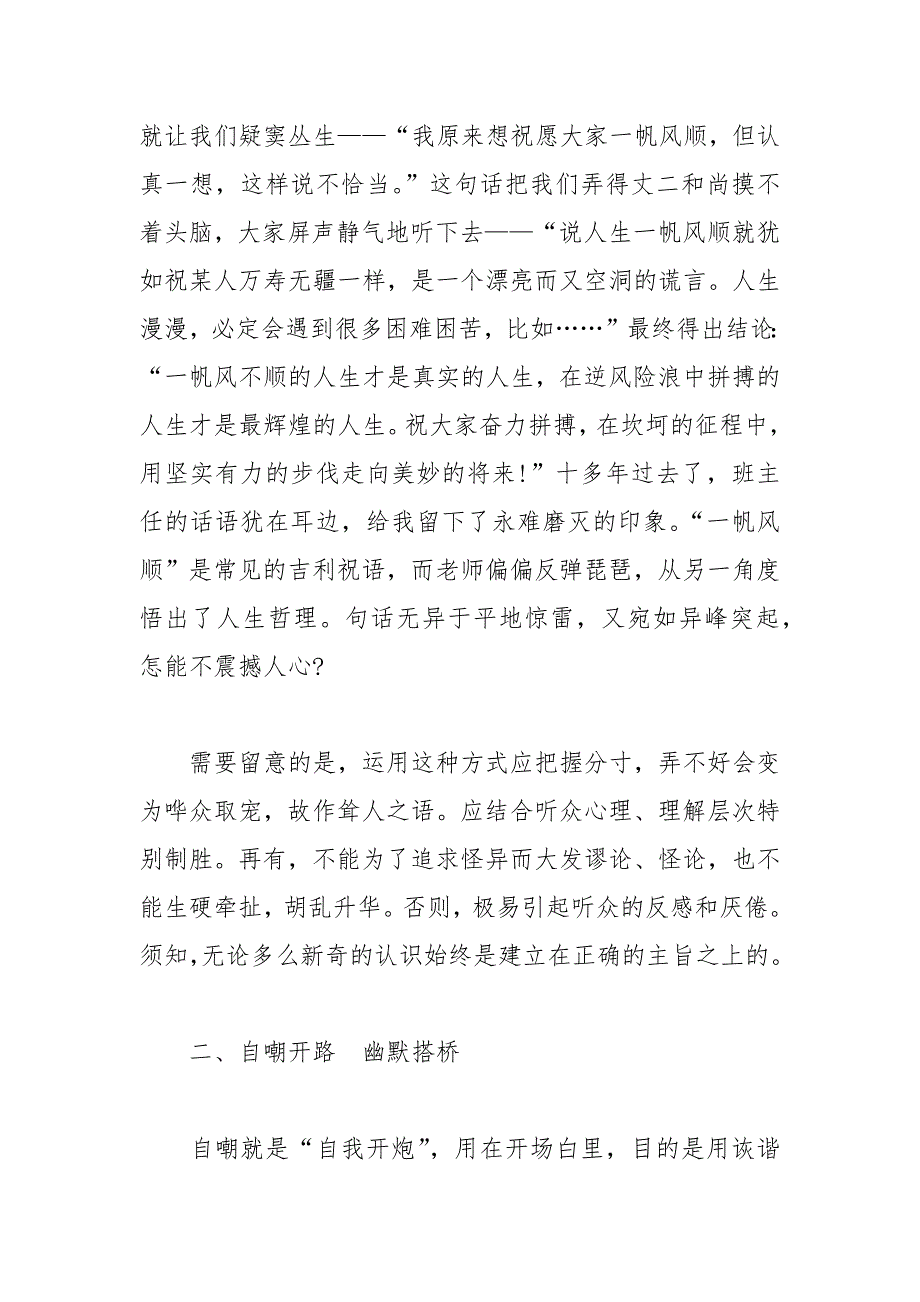 就让我们疑窦丛生——“我原来想祝愿大家一帆风顺，但认
真一想，这样说不恰当。”这句话把我们弄得丈二和尚摸不
着头脑，大家屏声静气地听下去——“说人生一帆风顺就犹
如祝某人万寿无疆一样，是一个漂亮而又空洞的谎言。人生
漫漫，必定会遇到很多困难困苦，比如……”最终得出结论：
“一帆风不顺的人生才是真实的人生，在逆风险浪中拼搏的
人生才是最辉煌的人生。祝大家奋力拼搏，在坎坷的征程中，
用坚实有力的步伐走向美妙的将来！”十多年过去了，班主
任的话语犹在耳边，给我留下了永难磨灭的印象。“一帆风
顺”是常见的吉利祝语，而老师偏偏反弹琵琶，从另一角度
悟出了人生哲理。句话无异于平地惊雷，又宛如异峰突起，
怎能不震撼人心?
需要留意的是，运用这种方式应把握分寸，弄不好会变
为哗众取宠，故作耸人之语。应结合听众心理、理解层次特
别制胜。再有，不能为了追求怪异而大发谬论、怪论，也不
能生硬牵扯，胡乱升华。否则，极易引起听众的反感和厌倦。
须知，无论多么新奇的认识始终是建立在正确的主旨之上的。
二、自嘲开路　幽默搭桥
自嘲就是“自我开炮”，用在开场白里，目的是用诙谐